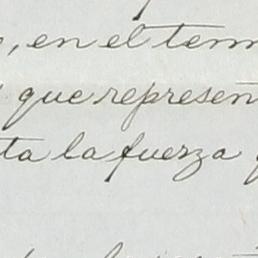 , en el term
que represen
ta la fuerza